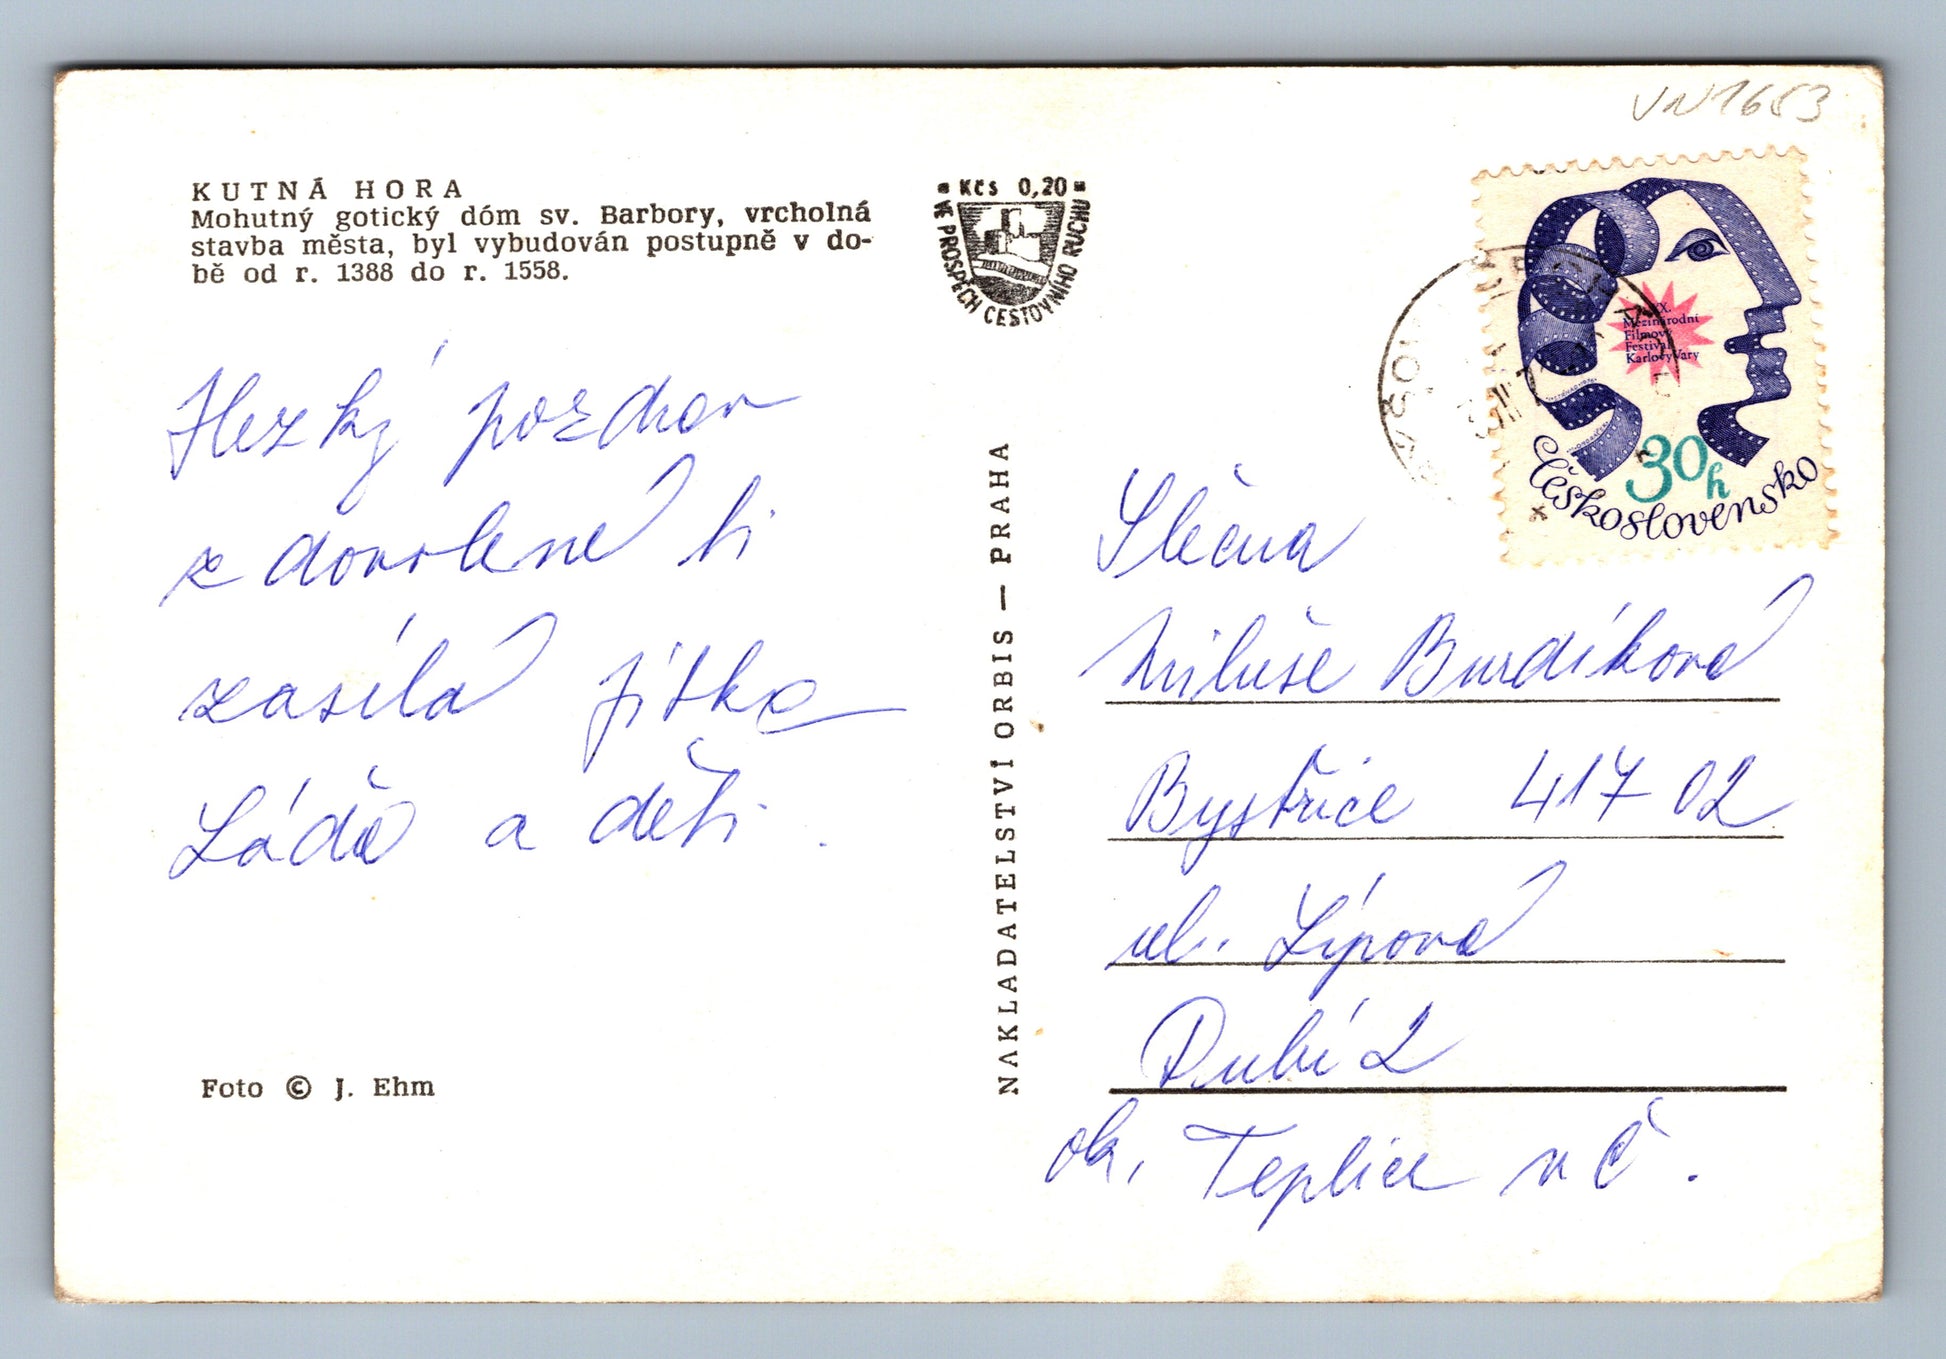 VN1653
KUTNÁ HORA
Mohutný gotický dóm sv. Barbory, vrcholná
stavba města, byl vybudován postupně v do-
bě od r. 1388 do r. 1558.
Kčs 0,20
VE PROSPĚCH CESTOVNÍHO RUCHU
Hezký pozdrav
z dovolené ti
zasílá Jitka
Láďa a děti.
Foto © J. Ehm
NAKLADATELSTVÍ ORBIS — PRAHA
XX.
Mezinárodní
Filmový
Festival
Karlovy Vary
30h
Československo
Slečna
Miluše Burdíková
Bystřice 417 02
ul. Lípová
Dubí 2
ok. Teplice v Č.